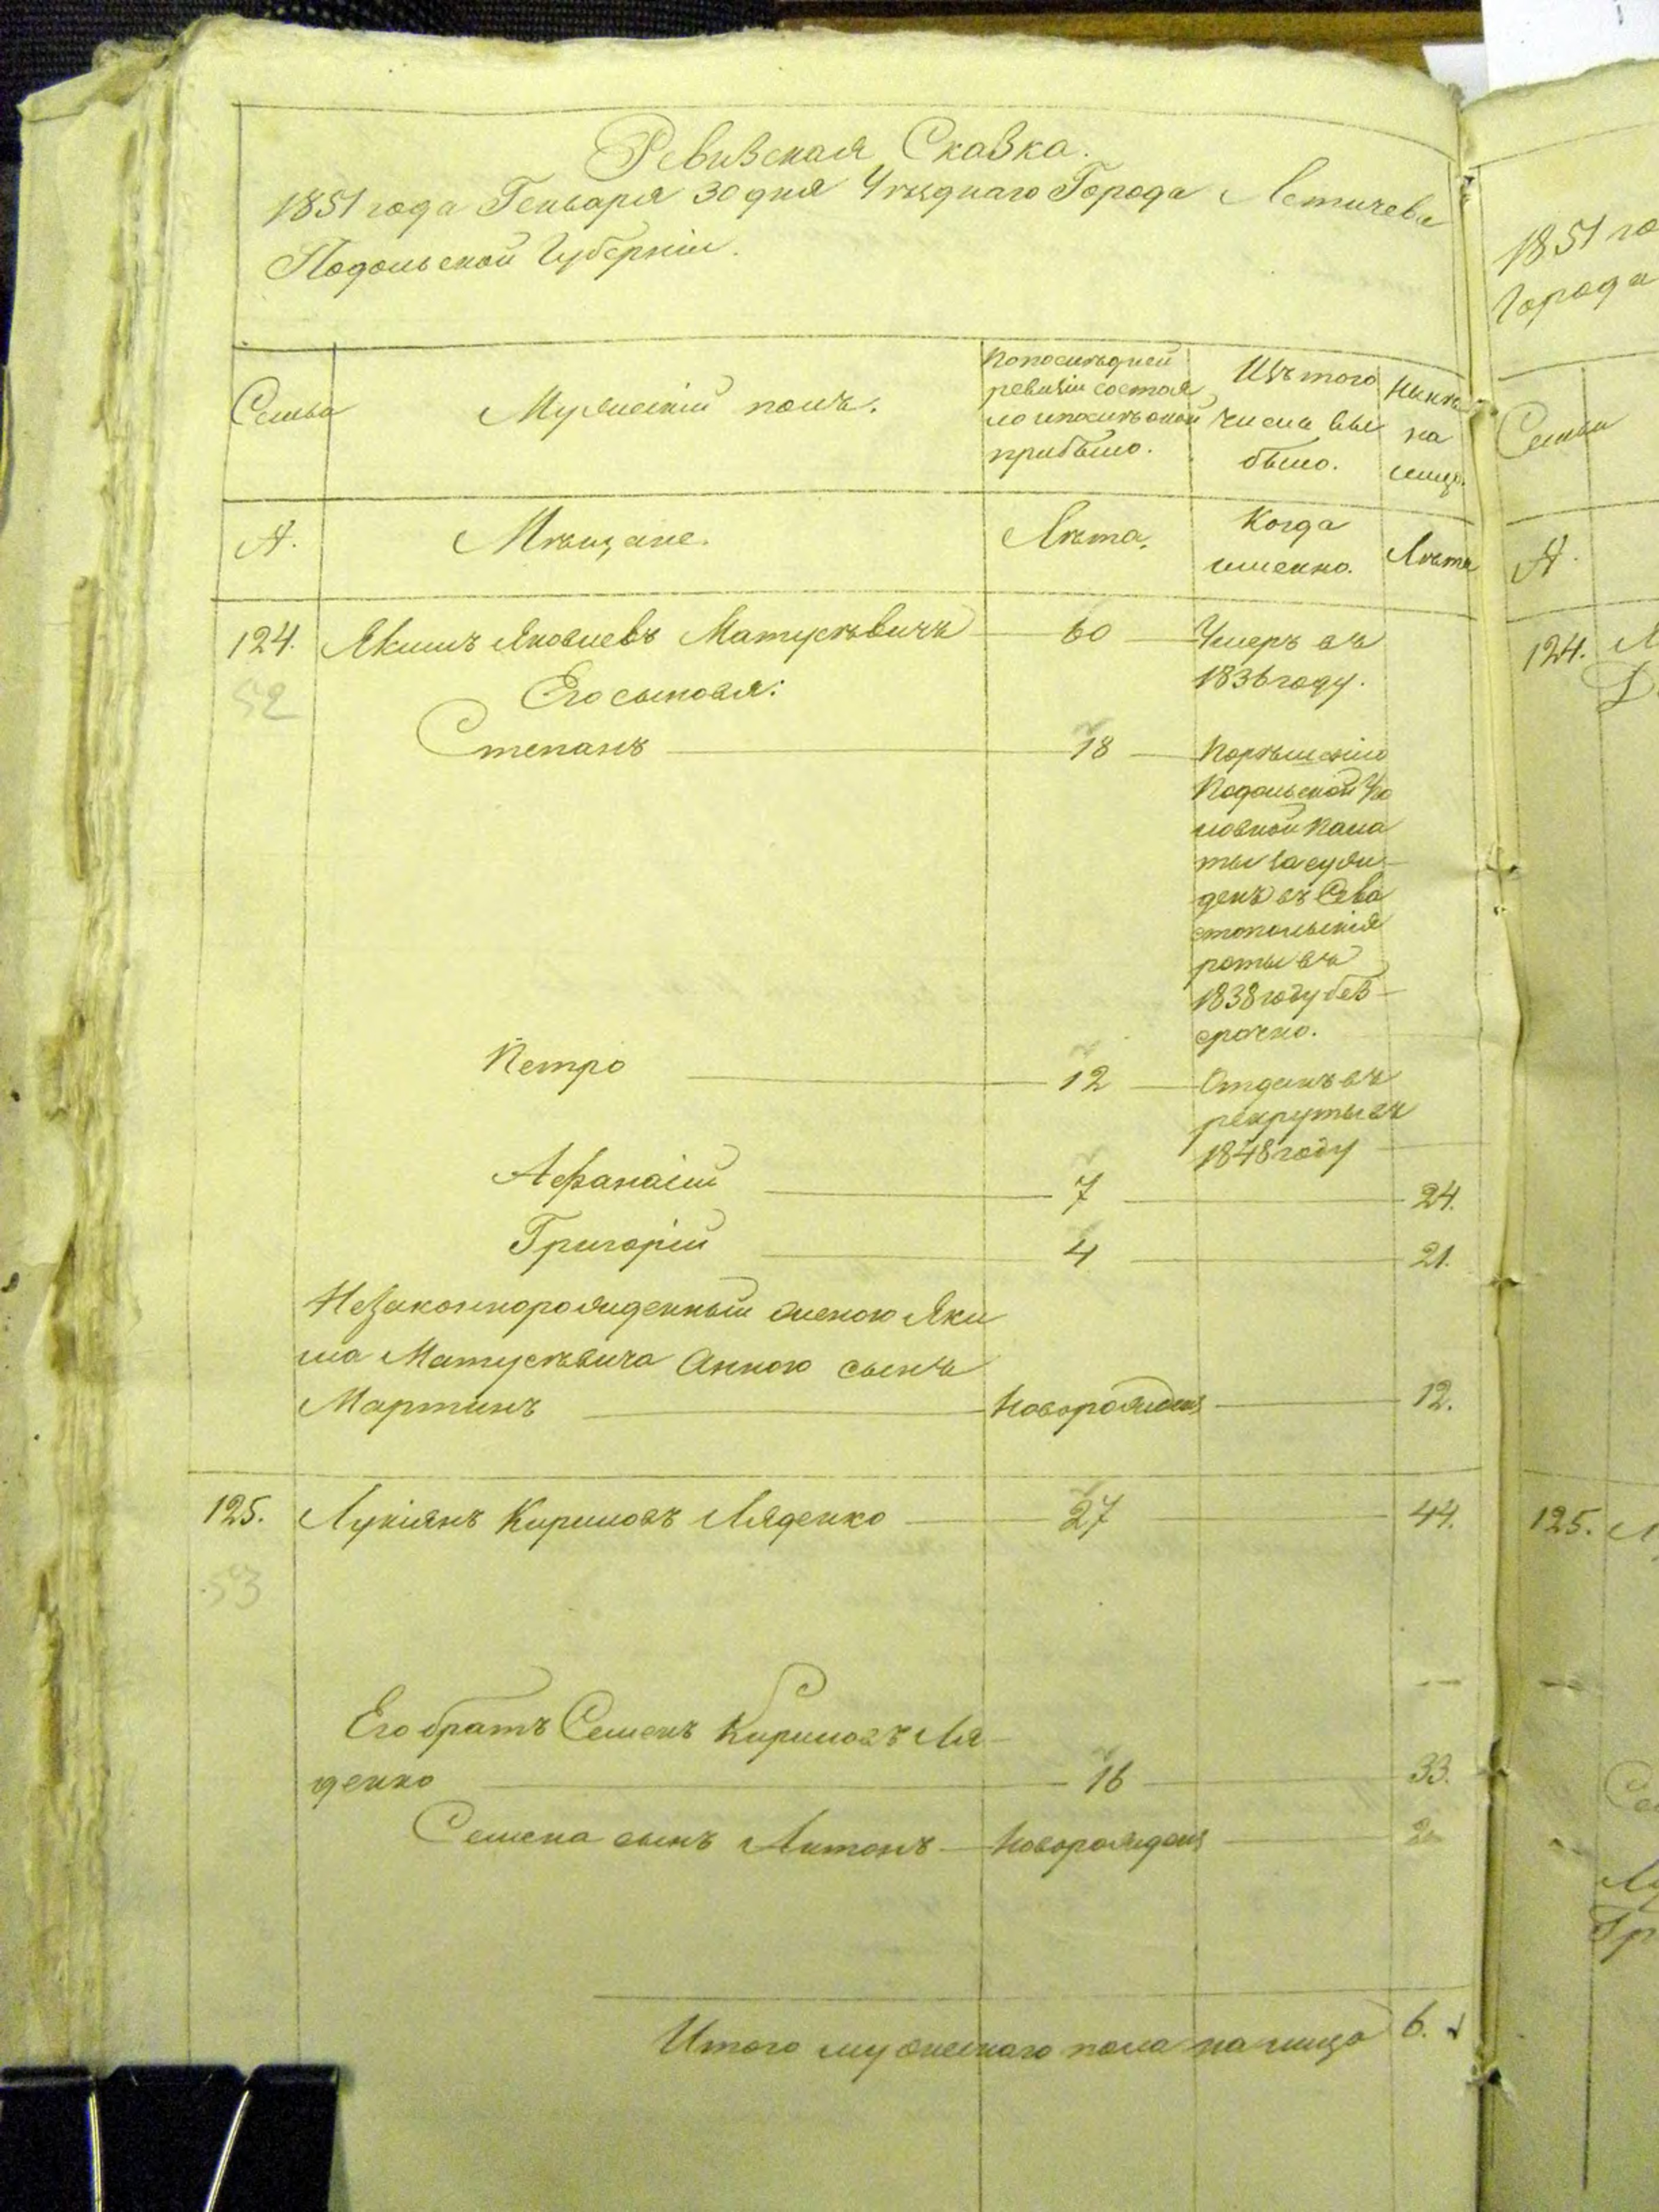 Ревизская Сказка.
1851 года Генваря 30 дня Уѣзднаго Города Летичева
Подольской Губерніи.
Семьи
Мужескій полъ.
По послѣдней
ревизіи состоя
ло и послѣ оной
прибыло.
Изъ того
числа вы
было.
Нынѣ
на
лицо.
А.
Мѣщане.
Лѣта.
Когда
именно.
Лѣта
124. Якимъ Яковлевъ Матусѣвичъ 60 Умеръ въ
1836 году.
52
Его сыновья:
Степанъ 18 По рѣшенію
Подольской Уго
ловной Пала
ты засуж-
денъ въ Сева
стопольскія
роты въ
1838 году без-
срочно.
Петро 12 Отданъ въ
рекруты въ
1848 году
Афанасій 7 24.
Григорій 4 21.
Незаконнорожденный женою Яки
ма Матусѣвича Анною сынъ
Мартинъ Новорожденъ 12.
125. Лукіянъ Кириловъ Ляденко 27 44.
53
Его братъ Семенъ Кириловъ Ля-
денко 16 33.
Семена сынъ Антонъ Новорожденъ 2
Итого мужескаго пола на лицо 6.
1851 го
Города
Семьи
А.
124.
125.